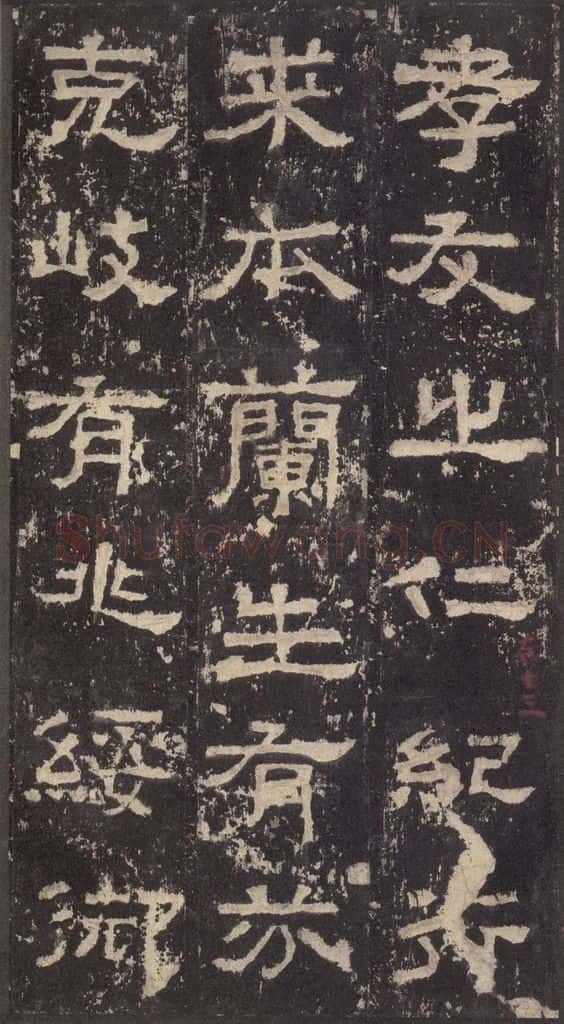 孝友之仁紀行
来本蘭生有芬
克岐有兆綏御
Shufawang.CN